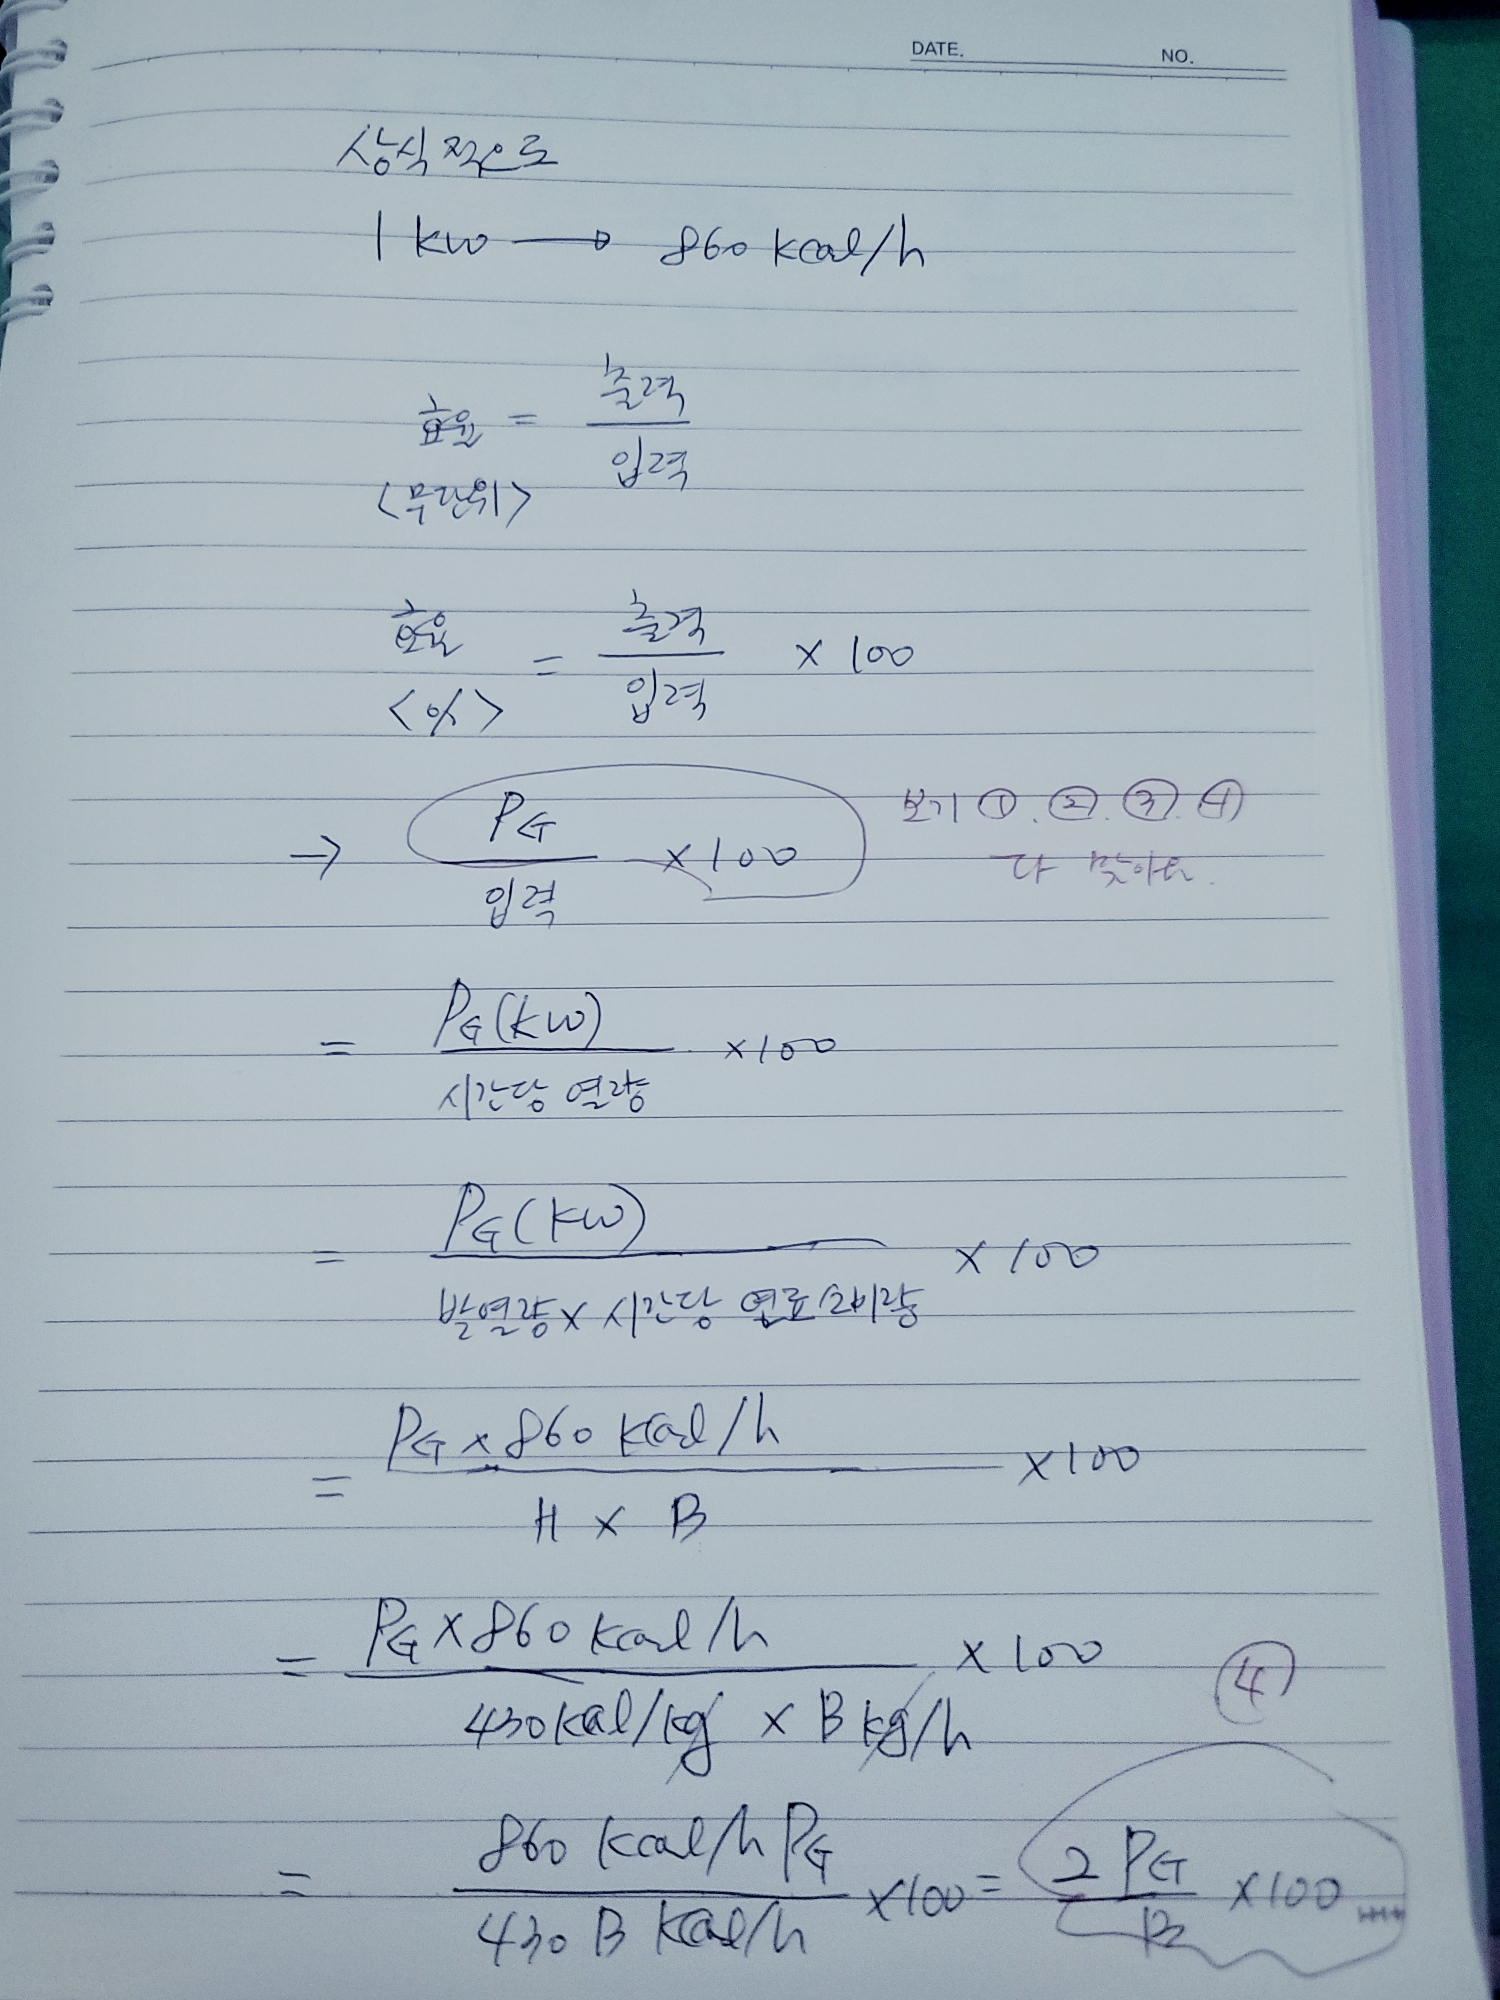 DATE. NO.
상식적으로
1 kw → 860 kcal/h
효율 = 출력 / 입력
<무단위>
효율 = 출력 / 입력 × 100
<%>
→ PG / 입력 × 100 보기 ①. ②. ③. ④
다 맞아요.
= PG(kw) / 시간당 열량 × 100
= PG(kw) / 발열량 × 시간당 연료소비량 × 100
= PG × 860 kcal/h / H × B × 100
= PG × 860 kcal/h / 430 kcal/kg × B kg/h × 100
④
= 860 kcal/h PG / 430 B kcal/h × 100 = 2 PG / B × 100